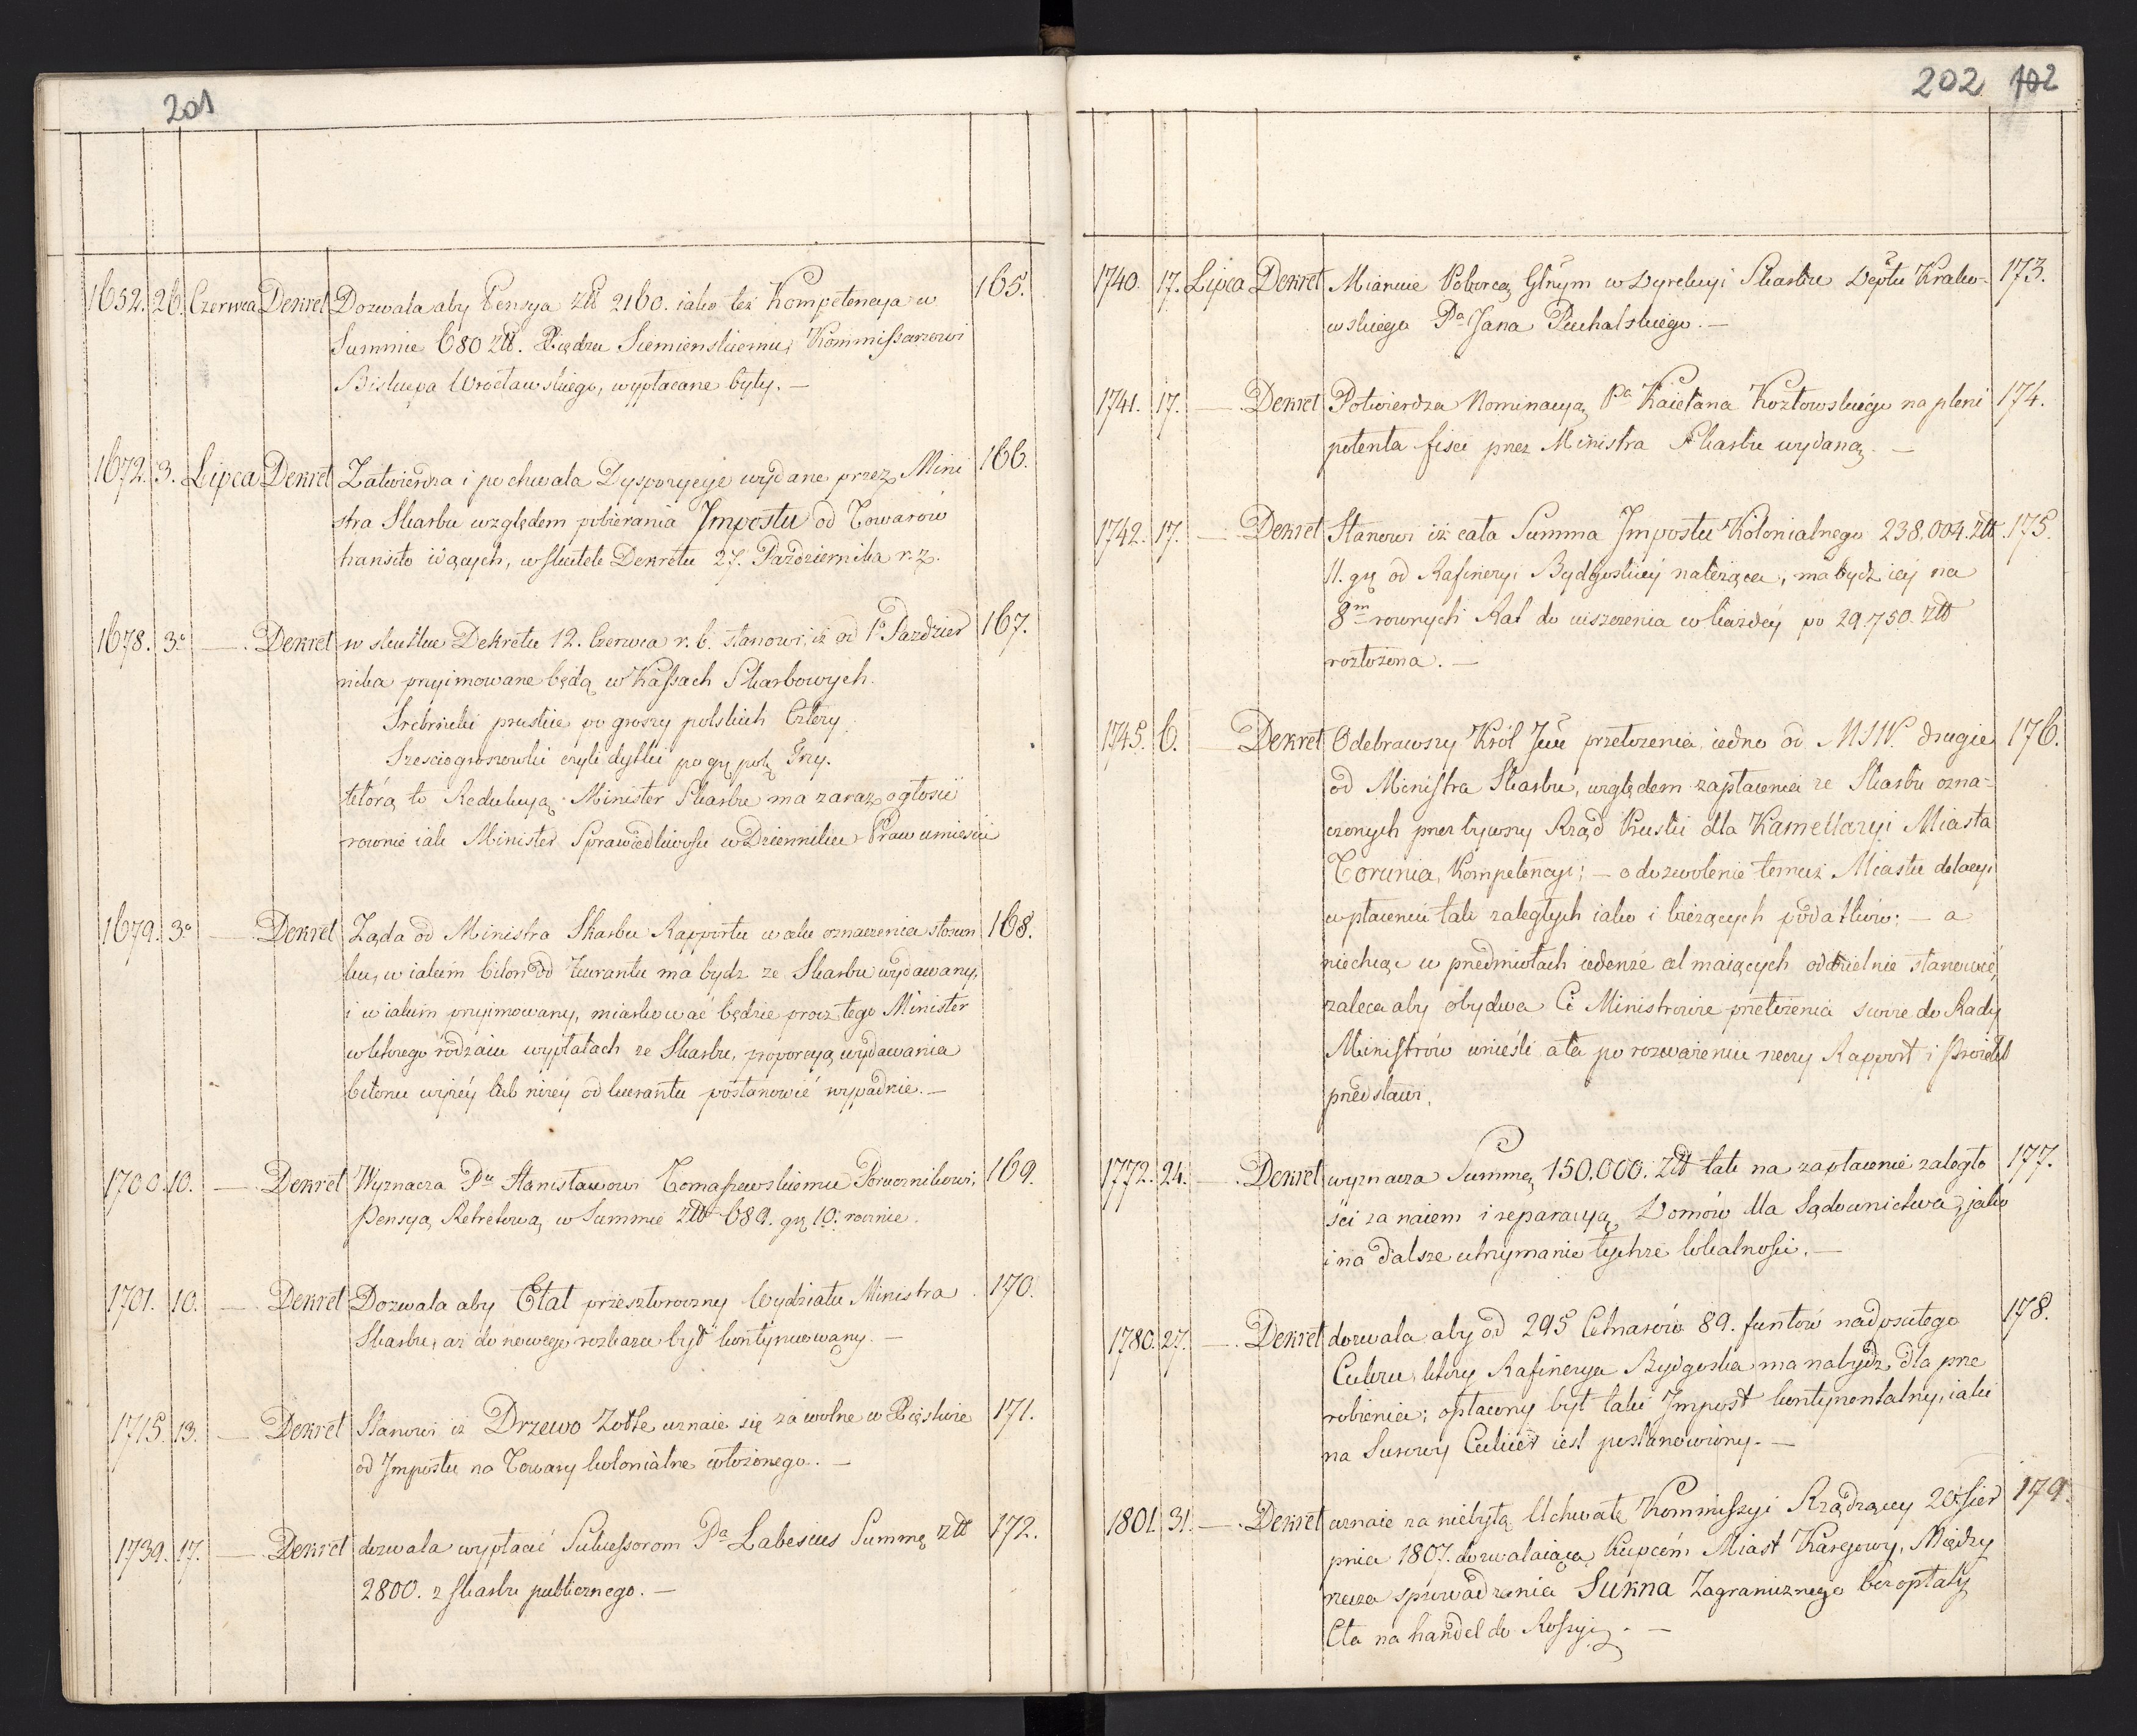 201
1652. 26. Czerwca Dekret Dozwala aby Pensya Złł 2160. iako też Kompetencya w 165.
Summie 680 złł. Xiędzu Siemienskiemu, Kommissarzowi
Biskupa Wrocławskiego, wypłacane były. —
1672. 3. Lipca Dekret Zatwierdza i pochwala Dyspozycye wydane przez Mini 166.
stra Skarbu względem pobierania Impostu od Towarów
transito idących, w skutek Dekretu 27. Października r. z.
1678. 3º — Dekret w skutku Dekretu 12. Czerwca r. b. stanowi, iż od 1º Paździer 167.
nika przyimowane będą w Kassach Skarbowych.
Srebrniki pruskie po groszy polskich Cztery
Szesciogroszowki czyli dytki po gr. pol. Trzy.
którą to Redukcyą Minister Skarbu ma zaraz ogłosić
rownie iak Minister Sprawiedliwości w Dzienniku Praw umieścić
1679. 3º — Dekret Ząda od Ministra Skarbu Rapportu w celu oznaczenia stosun 168.
ku, w iakim bilon od kurantu ma bydz ze Skarbu wydawany,
i w iakim przyimowany, miarkować będzie procz tego Minister
w którego rodzaiu wypłatach ze Skarbu, proporcyą wydawania
bilonu wyżéy lub niżéy od kurantu postanowić wypadnie. —
1700. 10. — Dekret Wyznacza Pu Stanisławowi Tomaszewskiemu Porucznikowi, 169.
Pensyą Retretową w Summie Złł 689. gr. 10. rocznie.
1701. 10. — Dekret Dozwala aby Etat przeszłoroczny Wydziału Ministra 170.
Skarbu, aż do nowego rozkazu był kontynuowany. —
1715. 13. — Dekret Stanowi iż Drzewo Zółte uznaie się za wolne w Xięstwie 171.
od Impostu na Towary kolonialne włożonego. —
1739. 17. — Dekret dozwala wypłacić Sukcessorom Pa Labesius Summę złł 172.
2800. z skarbu publicznego. —
202 102
1740. 17. Lipca Dekret Mianuie Poborcą Głnym w Dyrekcyi Skarbu Deptu Krako- 173.
wskiego Pa Jana Puchalskiego. —
1741. 17. — Dekret Potwierdza Nominacyą Pa Kaietana Kozłowskiego na pleni 174.
potenta fisci przez Ministra Skarbu wydaną. —
1742. 17. — Dekret Stanowi iż cała Summa Impostu Kolonialnego 238,004. złł. 175.
11. gr. od Rafineryi Bydgoskiéy należąca, ma bydź iéy na
8m rownych Rat do uiszczenia w każdéy po 29,750. złł
rozłożona. —
1745. 6. — Dekret Odebrawszy Król Jmć przełożenia, iedno od MSW. drugie 176.
od Ministra Skarbu, względem zapłacenia ze Skarbu ozna-
czonych przez bywszy Rząd Pruski dla Kamellaryi Miasta
Torunia, Kompetencyi; — o dozwolenie temuż Miastu dilacyi
w płaceniu tak zaległych iako i bieżących podatków: — a
niechcąc w przedmiotach iedenże cel maiących oddzielnie stanowić,
zaleca aby obydwa Ci Ministrowie przełożenia swoie do Rady
Ministrów wnieśli a ta po rozważeniu rzeczy Rapport i Proiekt
przedstawi.
1772. 24. — Dekret wyznacza Summę 150.000. Złł tak na zapłacenie zaległo 177.
ści za naiem i reparacyą Domów dla Sądownictwa, jako
i na dalsze utrzymanie tychże lokalności. —
1780. 27. — Dekret dozwala aby od 295 Cetnarów 89. funtów nadpsutego 178.
Cukru, który Rafinerya Bydgoska ma nabydź dla prze
robienia; opłacony był taki Impost kontynentalny, iaki
na Surowy Cukier iest postanowiony. —
1801. 31. — Dekret uznaie za niebyłą Uchwałę Kommissyi Rządzącey 20. Sier 179.
pnia 1807. dozwalaiącą Kupcóm Miast Kargowy, Między
rzecza sprowadzenia Sukna Zagranicznego bez opłaty
Cła na handel do Rossyi. —